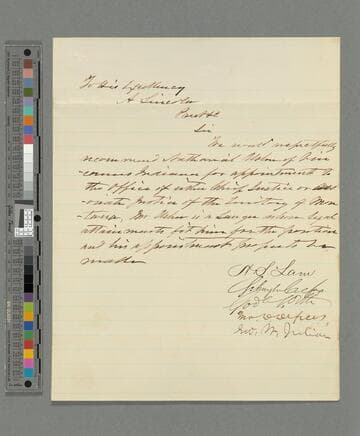 To His Excellency
A Lincoln
Prest &c
Sir
We would respectfully
recommend Nathaniel Usher of Vin-
-cennes Indiana for appointment to
the Office of either Chief Justice or Ass-
-ociate Justice of the Territory of Mon-
-tana, Mr Usher is a Lawyer whose legal
attainments fit him for the position
and his appointment
made
H. S. Lane
Schuyler Colfax
Godlove S. Orth
Geo. W. Julian